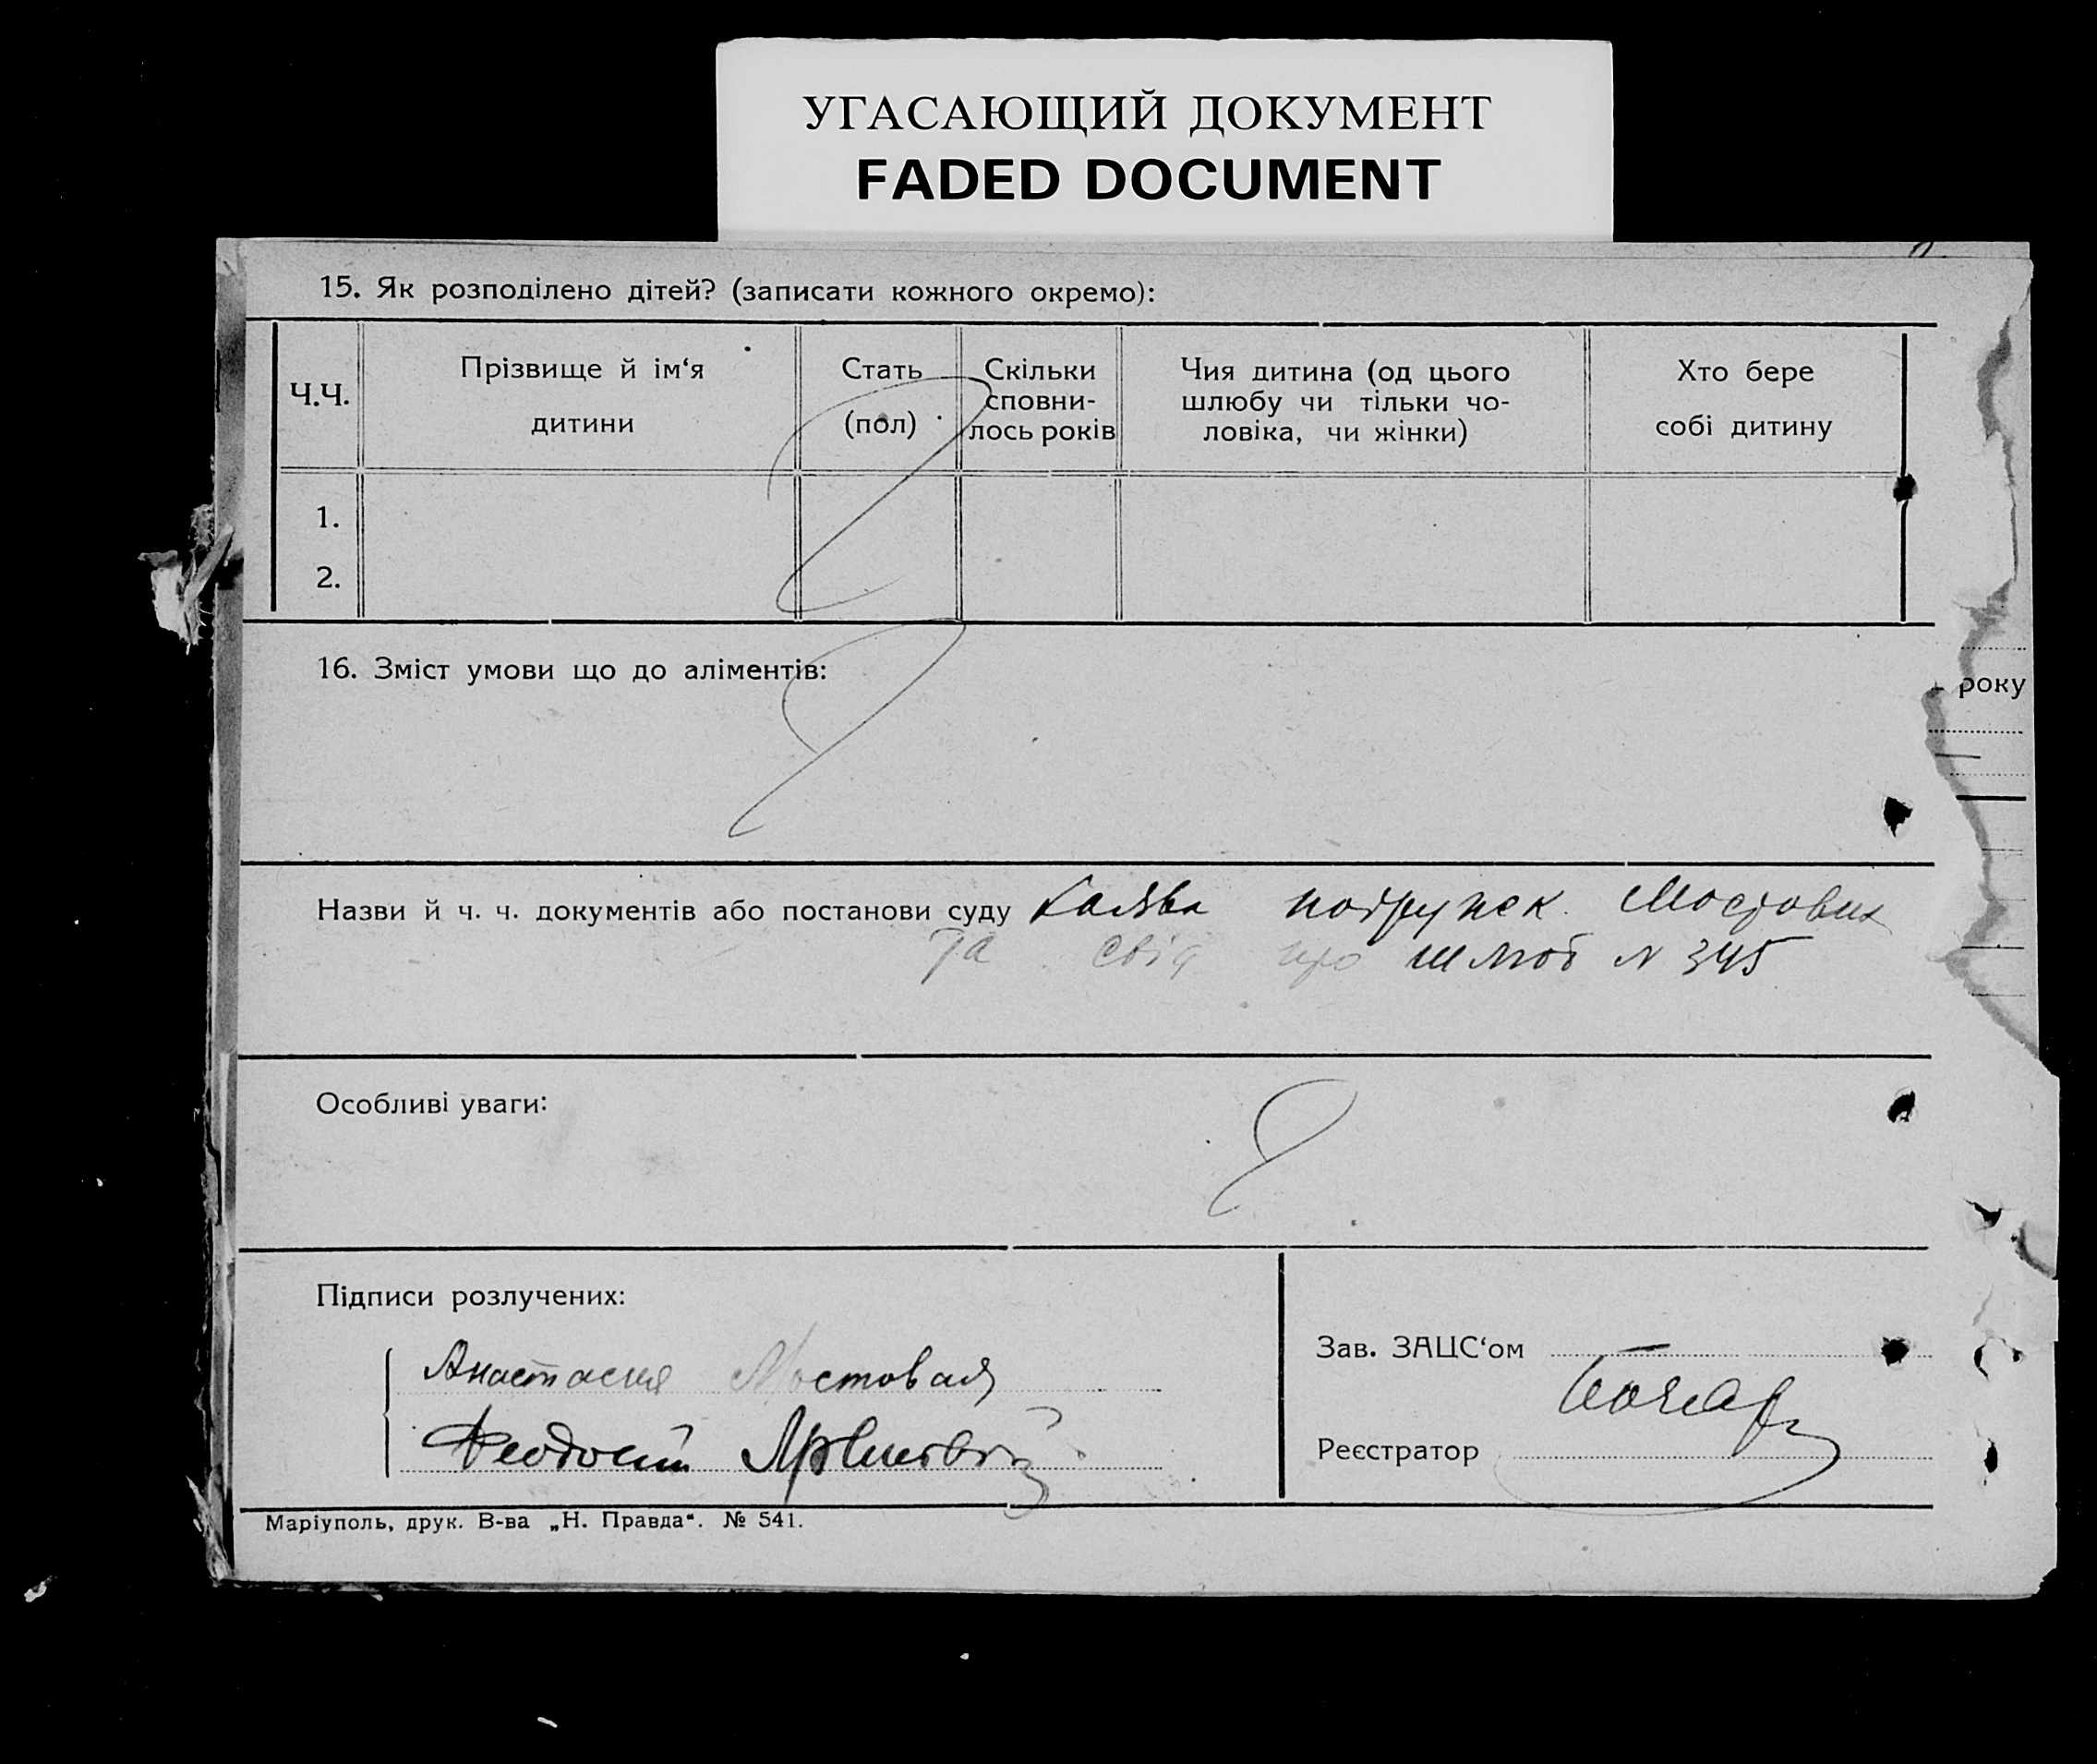 УГАСАЮЩИЙ ДОКУМЕНТ
FADED DOCUMENT
15. Як розподілено дітей? (записати кожного окремо):
Ч.Ч.
Прізвище й ім‘я
дитини
Стать
(пол)
Скільки
сповни-
лось років
Чия дитина (од цього
шлюбу чи тільки чо-
ловіка, чи жінки)
Хто бере
собі дитину
1.
2.
16. Зміст умови що до аліментів:
року
Назви й ч. ч. документів або постанови суду Заява подруж Мостових
та свід про шлюб N 345
Особливі уваги:
Підписи розлучених:
Анастасия Мостовая
Феодосий
Зав. ЗАЦС‘ом
Реєстратор
Маріуполь, друк. В-ва „Н. Правда“. № 541.